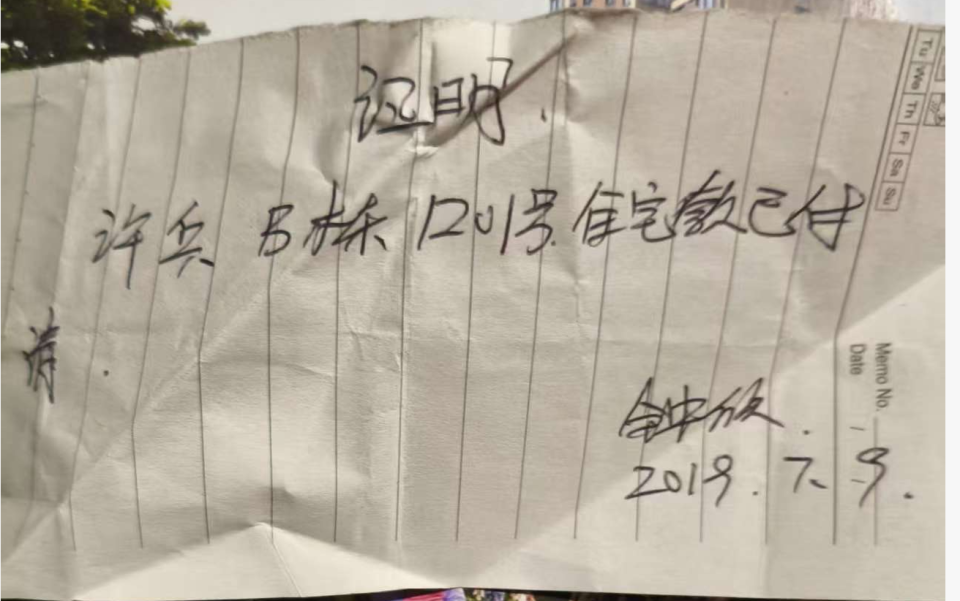 证明.
许兵 B栋 1201号 住宅款已付
清.
2019.7.9.
Tu We Th Fr Sa Su
Memo No.
Date